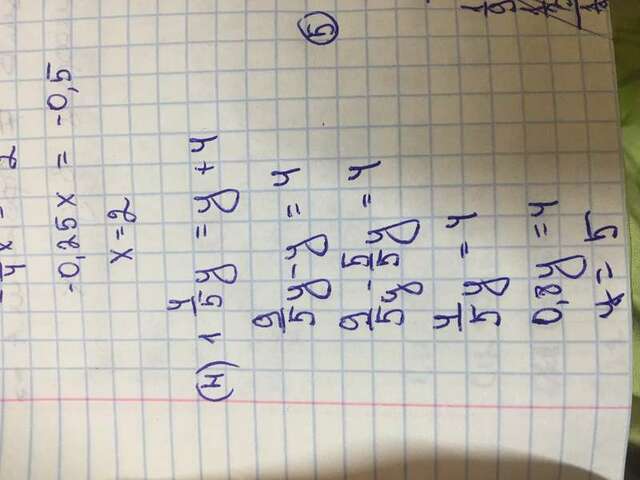 -1/4 x = 2
-0,25x = -0,5
x = 2
(Н) 1 4/5 y = y + 4
9/5 y - y = 4
9/5 y - 5/5 y = 4
4/5 y = 4
0,8y = 4
y = 5
5
1/9